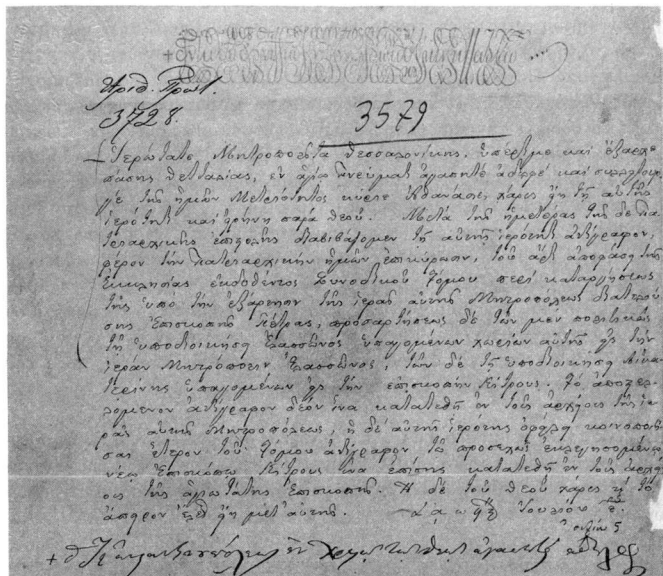 Ἀριθ. Πρωτ.
3728.
3579
Ἱερώτατε Μητροπολῖτα Θεσσαλονίκης, ὑπέρτιμε καὶ ἔξαρχε
πάσης Θετταλίας, ἐν ἁγίῳ Πνεύματι ἀγαπητὲ ἀδελφὲ καὶ συλλειτουργὲ
τῆς ἡμῶν Μετριότητος κύριε Ἀθανάσιε, χάρις εἴη τῇ αὐτῆς
ἱερότητι καὶ εἰρήνη παρὰ Θεοῦ. Μετὰ τῆς ἡμετέρας τῆσδε Πα
τριαρχικῆς ἐπιστολῆς διαβιβάζομεν τῇ αὐτῆς ἱερότητι ἀντίγραφον,
φέρον τὴν Πατριαρχικὴν ἡμῶν ἐπικύρωσιν, τοῦ ἄρτι ἀποφάσει τῆς
Ἐκκλησίας ἐκδοθέντος Συνοδικοῦ Τόμου περὶ καταργήσεως
τῆς ὑπὸ τὴν ἐξάρτησιν τῆς ἱερᾶς αὐτῆς Μητροπόλεως διατελού
σης Ἐπισκοπῆς Πέτρας, προσαρτήσεως δὲ τῶν μὲν πολιτικῶς
τῇ ὑποδιοικήσει Ἐλασσῶνος ὑπαγομένων χωρίων αὐτῆς εἰς τὴν
ἱερὰν Μητρόπολιν Ἐλασσῶνος, τῶν δὲ τῇ ὑποδιοικήσει Αἰκα
τερίνης ὑπαγομένων εἰς τὴν ἐπισκοπὴν Κίτρους. Τὸ ἀποστελ
λόμενον ἀντίγραφον δέον ἵνα κατατεθῇ ἐν τοῖς ἀρχείοις τῆς ἱε
ρᾶς αὐτῆς Μητροπόλεως, ἡ δὲ αὐτῆς ἱερότης ὀφείλει κοινοποιῆ
σαι ἕτερον τοῦ Τόμου ἀντίγραφον τῷ προσεχῶς ἐκλεγησομένῳ
νέῳ Ἐπισκόπῳ Κίτρους ἵνα ἐπίσης κατατεθῇ ἐν τοῖς ἀρχεί
οις τῆς ἁγιωτάτης Ἐπισκοπῆς. Ἡ δὲ τοῦ Θεοῦ χάρις καὶ τὸ
ἄπειρον ἔλεος εἴη μετ' αὐτῆς. Ἰουλίου
+ ὁ Κωνσταντινουπόλεως ἐν Χριστῷ ἀγαπητὸς ἀδελφὸς